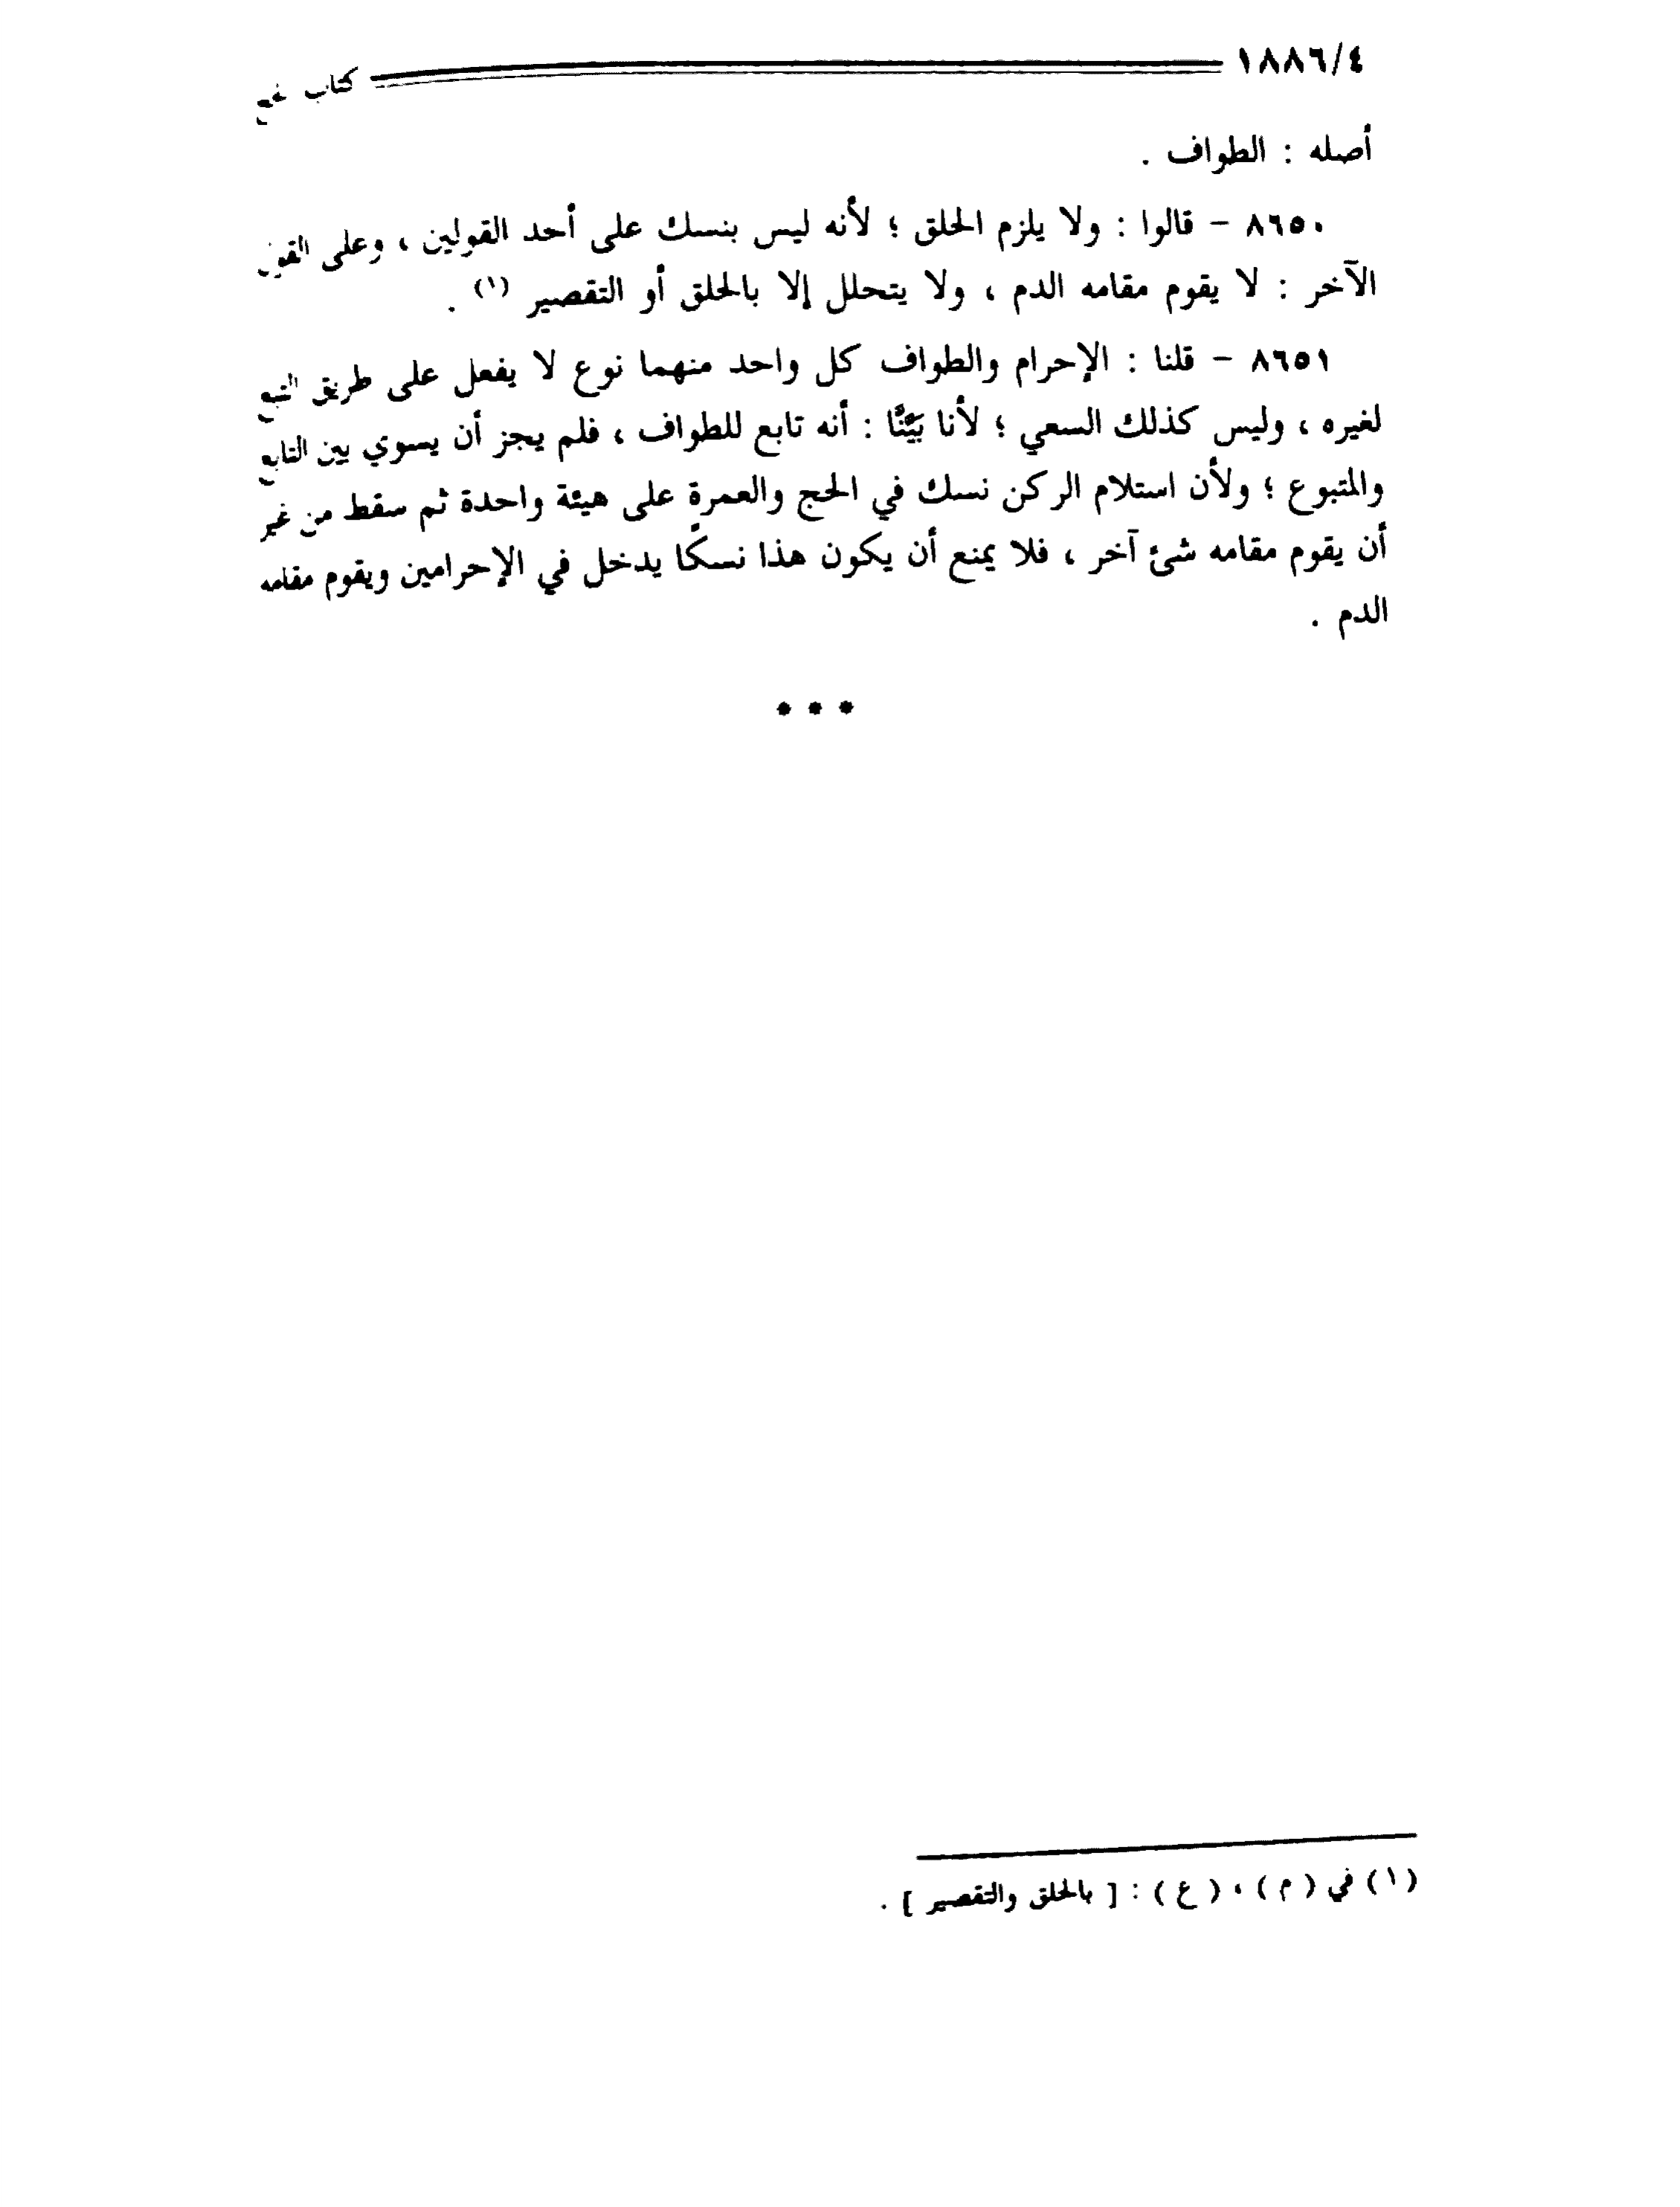 ١٨٨٦/٤ كتاب الحج
أصله : الطواف .
٨٦٥٠ - قالوا : ولا يلزم الحلق ؛ لأنه ليس بنسك على أحد القولين ، وعلى القول
الآخر : لا يقوم مقامه الدم ، ولا يتحلل إلا بالحلق أو التقصير (١) .
٨٦٥١ - قلنا : الإحرام والطواف كل واحد منهما نوع لا يفعل على طريق التبع
لغيره ، وليس كذلك السعي ؛ لأنا بَيَّنَّا : أنه تابع للطواف ، فلم يجز أن يسوي بين التابع
والمتبوع ؛ ولأن استلام الركن نسك في الحج والعمرة على هيئة واحدة ثم سقط من غير
أن يقوم مقامه شئ آخر ، فلا يمنع أن يكون هذا نسكًا يدخل في الإحرامين ويقوم مقامه
الدم .
* * *
(١) في ( م ) ، ( ع ) : [ بالحلق والتقصير ] .